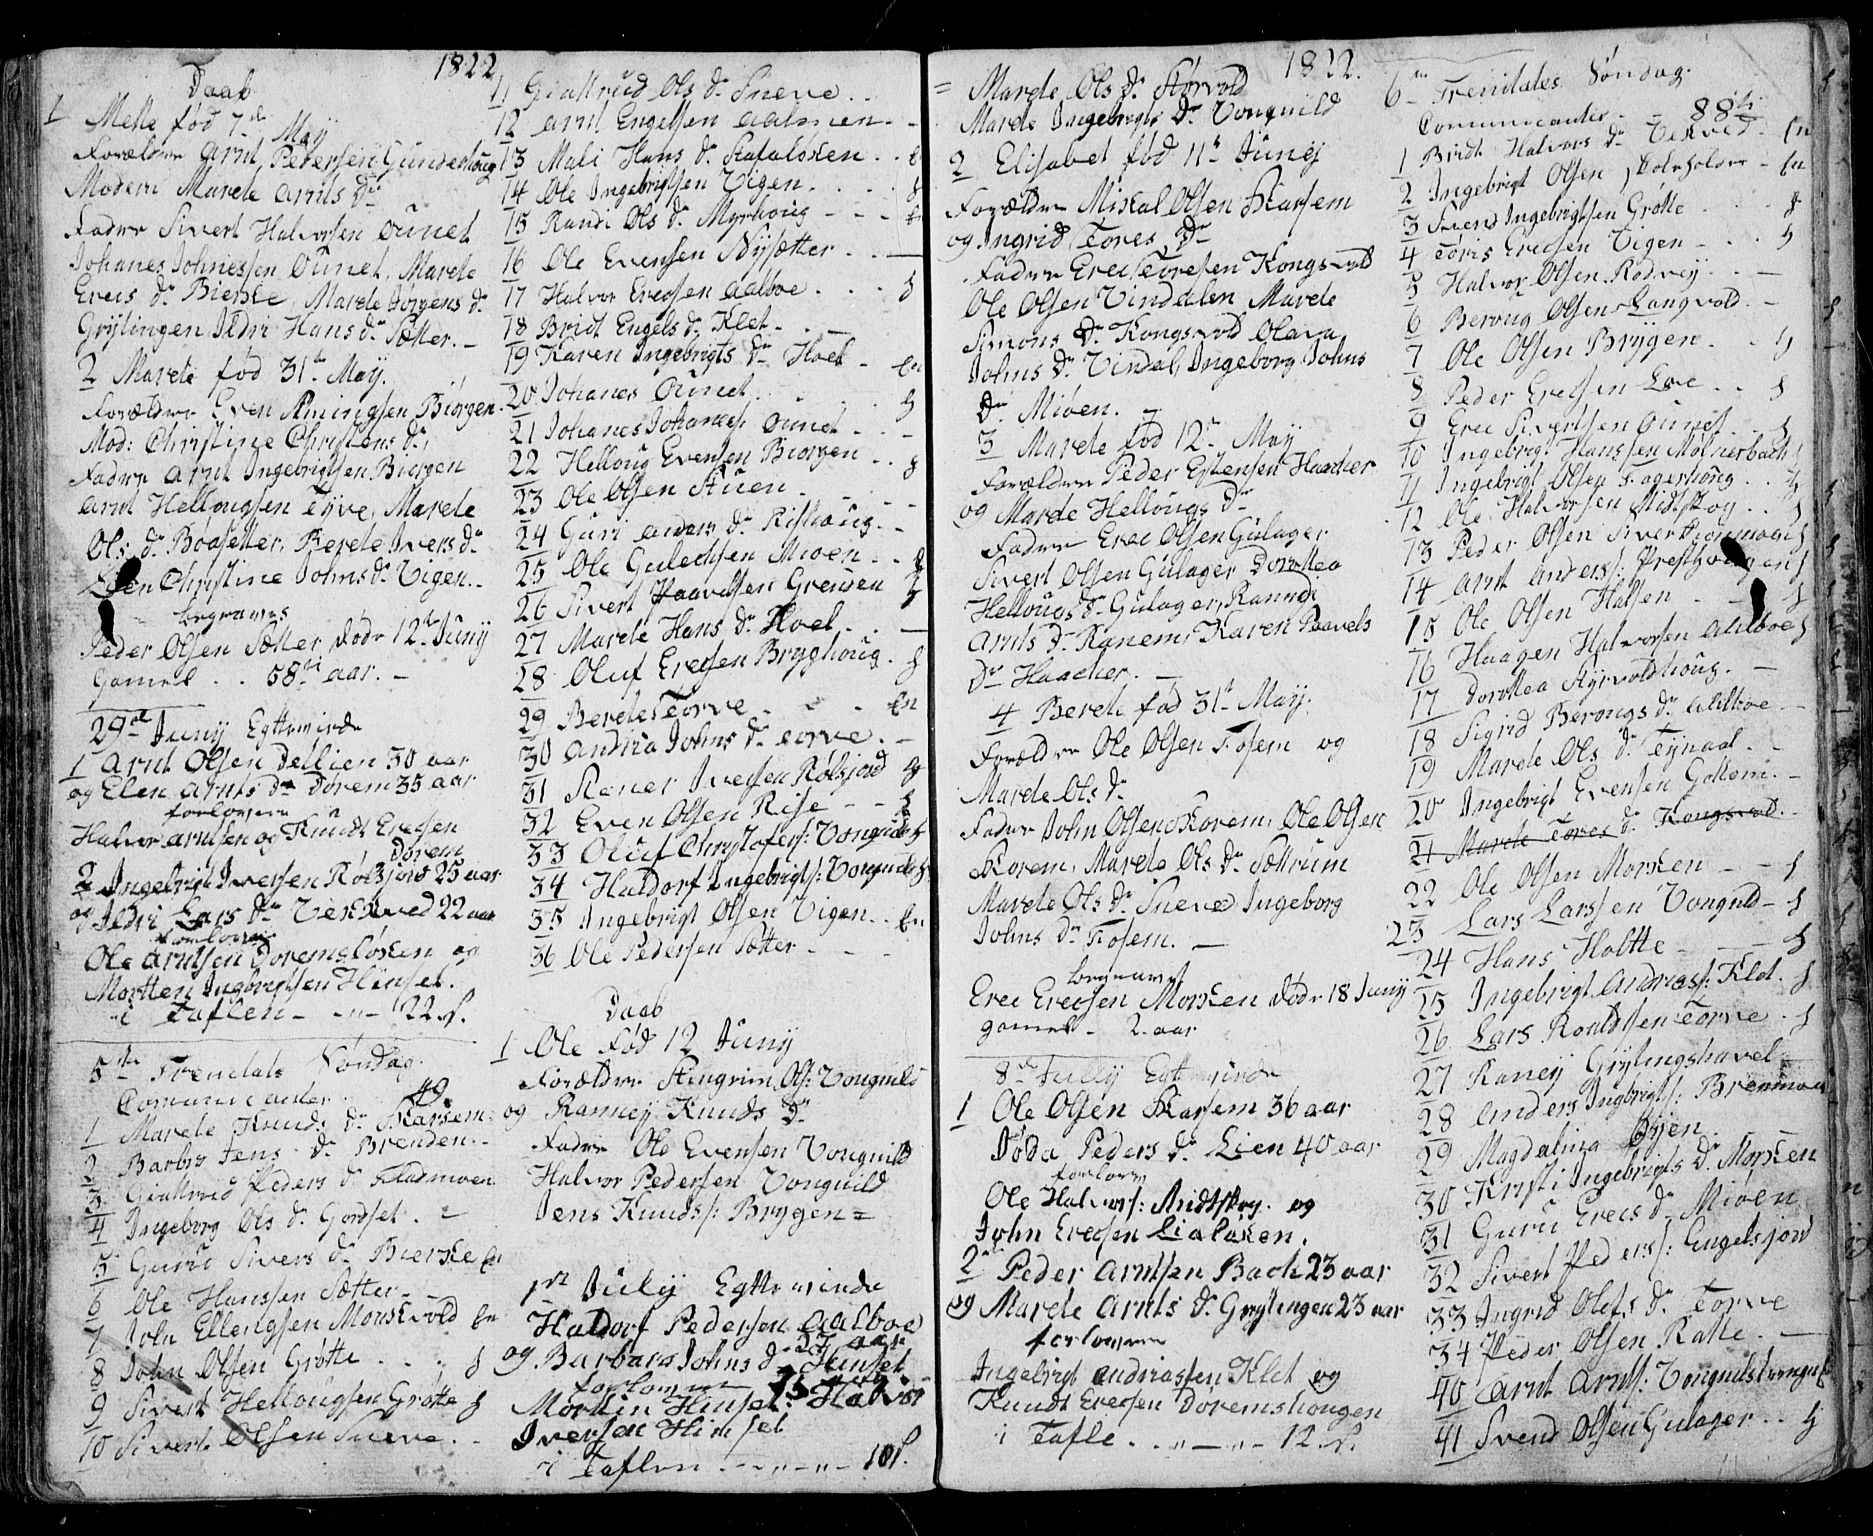 1822
Daab
1 Mette fød 7de May
Forældre Arnt Pedersen Gunderhoug
Modern Marete Arnts Dr
Faddre Sivert Halvorsen Øunet
Johanes Johnessen Øunet, Marete
Erecs Dr Bierke, Marete Jørgens Dr
Grytingen Ildri Hans Dr Sætter. -
2 Marete fød 31te May.
Forældre Even Amingsen Biørgen
Mod: Christine Christens Dr
Faddre Arnt Ingebrigtsen Biørgen
Arnt Hellougsen Tyve, Marete
Ols Dr Böasetter, Berete Ivers Dr
Lien Christine Johns Dr Vigen.
begraves
Peder Olsen Sætter døde 12te Juny
gamel . . 58ti aar. -
29de Juny Egtteviede
1 Arnt Olsen Dellien 30 aar
og Elen Arnts Dr Dørem 35 aar
forlovere
Halvor Arntsen og Knudt Erecsen
Dørem
2 Ingebrigt Iversen Rølsjord 25 aar
og Ildri Lars Dr Vekved 22 aar
forlovere
Ole Arntsen Doremsløkken og
Mortten Ingbrigtsen Hinset.
i Taflen - - 22 s.
5te Trenitatis Søndag.
Comunicanter. 49.
1 Marete Knuds Dr Skarsem
2 Barbro Jens Dr Brenden. -
3 Giattrud Peders Dr Fladmoen
4 Ingeborg Ols Dr Gorset . -
5 Guru Sivers Dr Bierke En
6 Ole Hanssen Sætter -
7 John Ellengsen Monskvold En
8 John Olsen Grøtte . . . . g
9 Sivert Hellougsen Grøtte g
10 Sivert Olsen Sneve. . .
11 Giattrud Ols Dr Sneve. .
12 Arnt Engelsen Aalmen -
13 Mali Hans Dr Stafaløkken . . En
14 Ole Ingebrigtsen Vigen. . . . g
15 Randi Ols Dr Myrhoug - - - En
16 Ole Evensen Nysætter . . . -
17 Halvor Erecsen Aalboe . . . . g
18 Bridt Engels Dr Klet - . -
19 Karen Ingebrigts Dr Hoel - En
20 Johanes Øunet. . . . . . g
21 Johanes Johaness: Øunet . . -
22 Helloug Evensen Biørgen . . g
23 Ole Olsen Stuen . . - -
24 Guri Anders Dr Risthoug. -
25 Ole Gulechsen Mioen . . g
26 Sivert Paavelsen Grensen g
27 Marete Hans Dr Hoel . . -
28 Oluf Erecsen Bryghoug. g
29 Berete Torve - . - En
30 Andrea Johns Dr Torve. -
31 Rener Iversen Rølsjord g
32 Even Olsen Rise - - g
33 Oluf Christofers: Vonguild g
34 Haldorf Ingebrigts: Vonguild g
35 Ingebrigt Olsen Vigen. . En
36 Ole Pedersen Sætter - - -
Daab
1 Ole fød 12 Juny
Forældre Stengrim Ols: Vonguild
og Ranney Knuds Dr
Faddre Ole Evensen Vonguild
Halvor Pedersen Vonguild
Jens Knuds: Brygen =
1ste July Egtteviede
Haldorf Pedersen Aalboe
27 aar
og Barbara Johns Dr Hinset
forlovere
Mortin Hinset: Halvor
Iversen Hinset
i Taflen - - - 101.
1822.
= Marete Ols Dr Størvold
Marete Ingebrigts Dr Vonguild
2 Elisabet fød 11te Juny
Forældre Mikal Olsen Skarsem
og Ingrid Tores Dr
Faddre Erec Toresen Kongsvold
Ole Olsen Vindalen Marete
Simons Dr Kongsvold Olava
Johns Dr Vindal, Ingeborg Johns
Dr Mioen.
3 Marete fød 12te May
Forældre Peder Estensen Haacker
og Marete Hellougs Dr
Faddre Erec Olsen Gulager
Sivert Olsen Gulager Dorothea
Hellougs Dr Gulager, Randi
Arnts Dr Ranem, Karen Paavels
Dr Haacker. -
4 Berete fød 31te May.
Forældre Ole Olsen Fosem og
Marete Ols Dr
Faddre John Olsen Skorem, Ole Olsen
Skorem, Marete Ols Dr Sættrum
Marete Ols Dr Sneve Ingeborg
Johns Dr Fosem. -
begravet
Erec Erecsen Morken døde 18 Juny
gamel - 2 aar
8de Jully Egtteviede
1 Ole Olsen Skarsem 36 aar
Døda Peders Dr Lien 40 aar
forlovere
Ole Halvors: Midtskog. og
John Erecsen Lialøken.
2 Peder Arntsen Bach 23 aar
og Marete Arnts Dr Grytingen 23 aar
forlovere
Ingebrigt Andreassen Klet og
Knudt Erecsen Doremshougen
i Tafle. . - - 12 s.
6te Trenitates Søndag.
Comunicanter - - 88te
1 Bridt Halvors Dr Vekved. En
2 Ingebrigt Olsen Skoleholder - En
3 Svend Ingebrigtsen Grøtte . . g
4 Toris Erecsen Vigen - . . g
5 Halvor Olsen Rødvey . . -
6 Beroug Olsen Langvold. -
7 Ole Olsen Brygen . . g
8 Peder Erecsen Loe . . g
9 Erec Sivertsen Øunet . . g
10 Ingebrigt Hanssen Mølnerbach g
11 Ingebrigt Olsen Fagerhoug . . g
12 Ole Halvorsen Midtskog . . g
13 Peder Olsen Sivertsionmogen g
14 Arnt Anderss: Presthougen g
15 Ole Olsen Halsen - - g
16 Haagen Halvorsen Aalboe g
17 Dorottea Styrvoldhoug. -
18 Sigrid Berougs Dr Aalboe. -
19 Marete Ols Dr Tynaal. -
20 Ingebrigt Evensen Gottem. -
21 Marete Tores Dr Kongsvold.
22 Ole Olsen Morken - - g
23 Lars Larssen Vonguld - g
24 Hans Holtte - - - g
25 Ingebrigt Andreass: Klet. g
26 Lars Roaldssen Torve. g
27 Raney Grytingshavel
28 Anders Ingbrigts: Brenmoen
29 Magdalina Øyen.
30 Kristi Ingebrigts Dr Morken
31 Guru Erecs Dr Mioen
32 Sivert Peders: Engelsjord
33 Ingrid Olefs Dr Torve
34 Peder Olsen Ratte. -
40 Arnt Arnts: Vonguildsvongen
41 Svend Olsen Gulager. . g